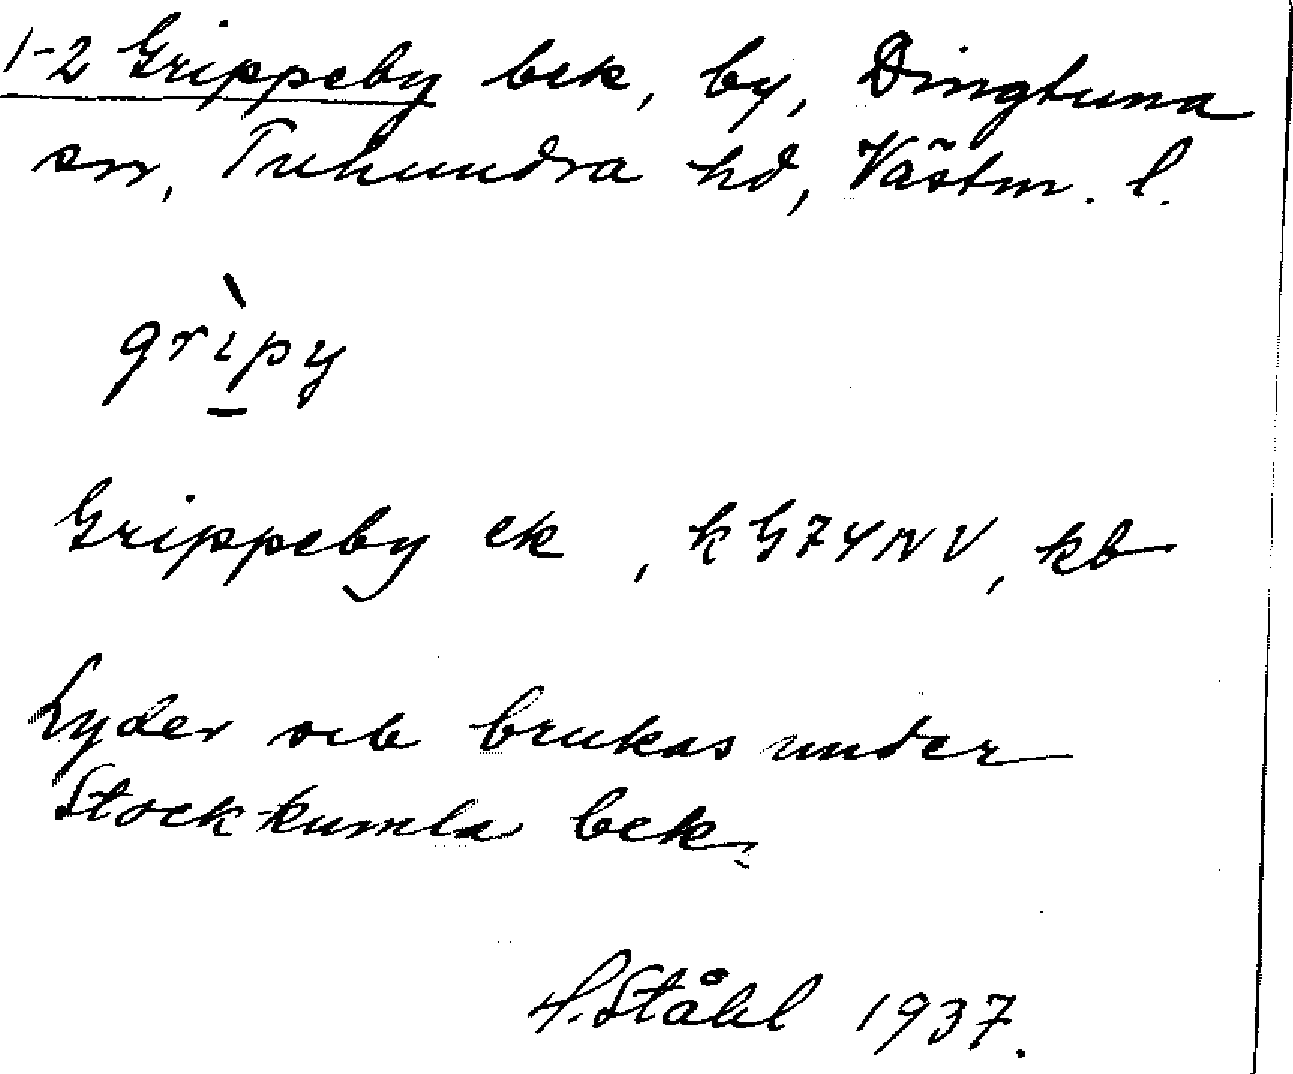 1-2 Grippeby bek, by, Dingtuna
sn, Tuhundra hd, Västm. l.
grìpy
Grippeby ek, k G74NV, kb
Lyder och brukas under
Stockkumla bek.
H. Ståhl 1937.